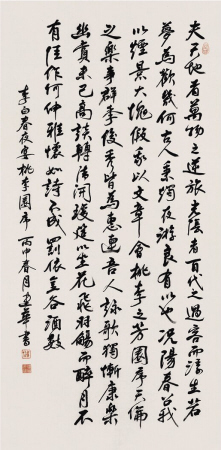 夫天地者萬物之逆旅光陰者百代之過客而浮生若
夢為歡幾何古人秉燭夜游良有以也況陽春召我
以煙景大塊假我以文章會桃李之芳園序天倫
之樂事群季俊秀皆為惠連吾人詠歌獨慚康樂
幽賞未已高談轉清開瓊筵以坐花飛羽觴而醉月不
有佳作何伸雅懷如詩不成罰依金谷酒數
李白春夜宴桃李園序 丙申春月建華書